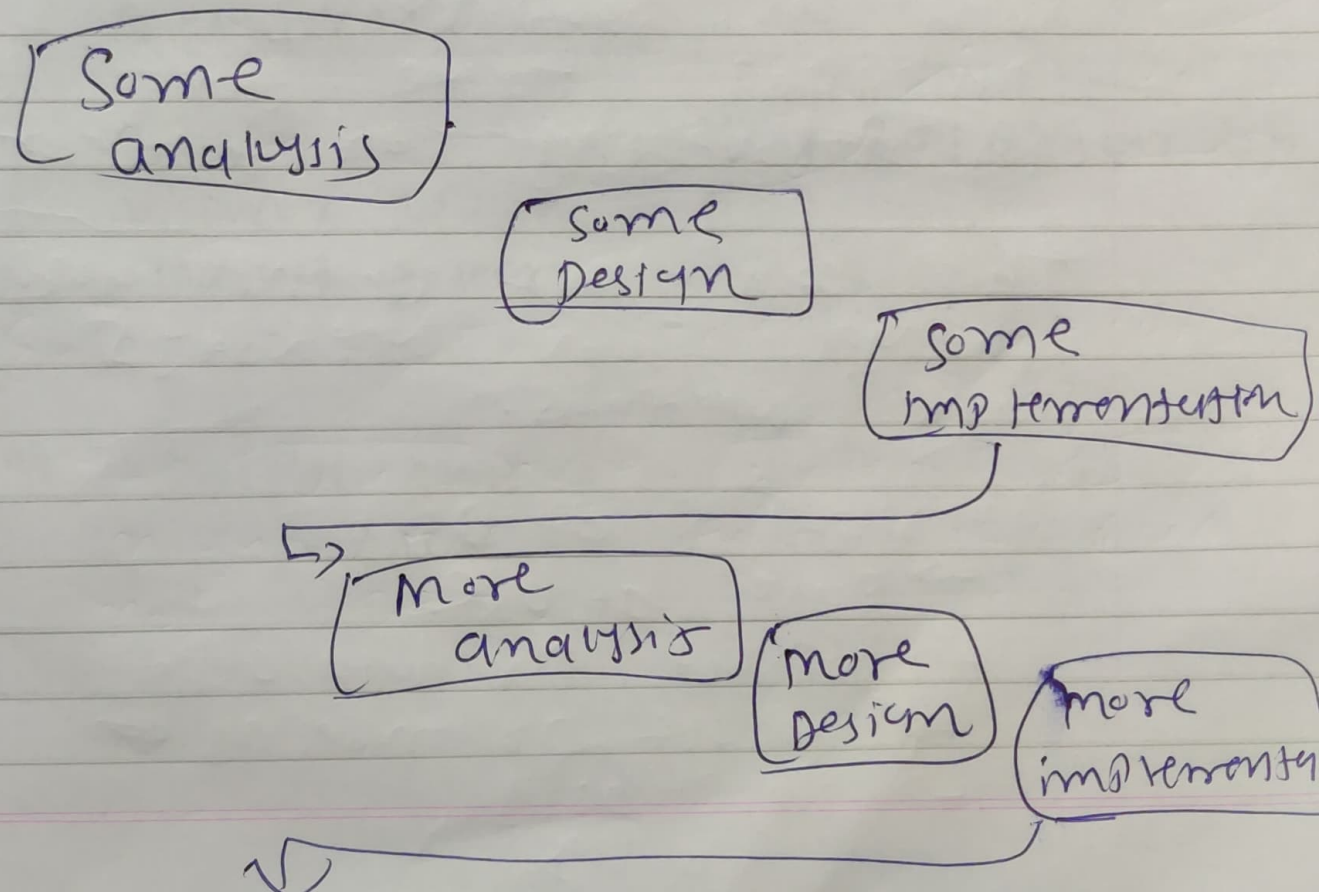 Some
analysis
Some
Design
Some
implementation
More
analysis
more
Design
more
implementa